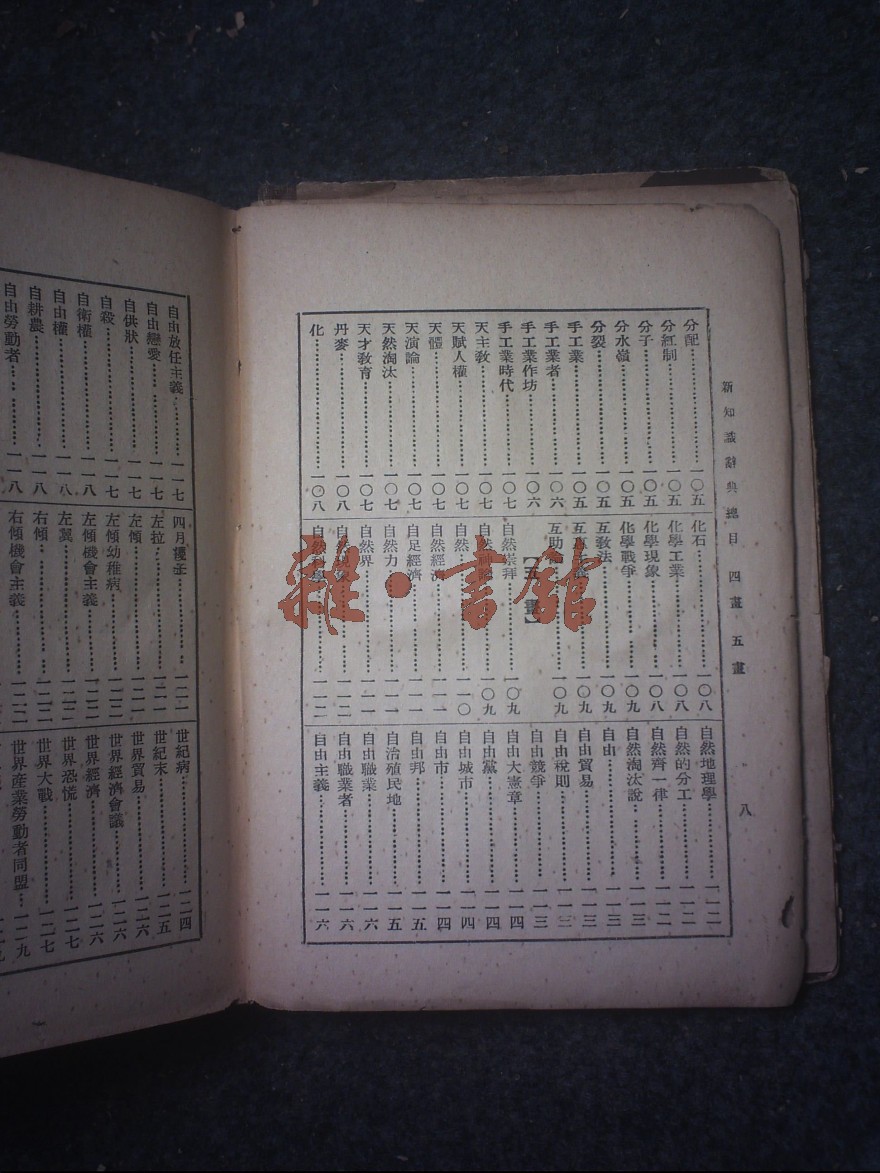 新知識辭典總目 四畫 五畫
八
分配……一〇五
分紅制……一〇五
分子……一〇五
分水嶺……一〇五
分裂……一〇五
手工業……一〇五
手工業者……一〇六
手工業作坊……一〇六
手工業時代……一〇七
天主教……一〇七
天賦人權……一〇七
天體……一〇七
天演論……一〇七
天然淘汰……一〇七
天才教育……一〇七
丹麥……一〇八
化……一〇八
化石……一〇八
化學工業……一〇八
化學現象……一〇八
化學戰爭……一〇九
互教法……一〇九
一〇九
互助……一〇九
【五畫】
自然崇拜……一〇九
自然……一〇九
自然……一一〇
自然經濟……一一一
自足經濟……一一一
自然力……一一一
自然界……一一一
自然現象……一一二
自然科學……一一二
自然地理學……一一二
自然的分工……一一二
自然齊一律……一一二
自然淘汰說……一一三
自由……一一三
自由貿易……一一三
自由稅則……一一三
自由競爭……一一三
自由大憲章……一一四
自由黨……一一四
自由城市……一一四
自由市……一一四
自由邦……一一五
自治殖民地……一一五
自由職業……一一六
自由職業者……一一六
自由主義……一一六
自由放任主義……一一七
自由戀愛……一一七
自供狀……一一七
自殺……一一七
自衛權……一一八
自由權……一一八
自耕農……一一八
自由勞動者……一一八
四月提全……一二一
左拉……一二一
左傾幼稚病……一二一
左傾……一二一
左傾機會主義……一二二
左翼……一二二
右傾……一二二
右傾機會主義……一二二
世紀病……一二四
世紀末……一二五
世界貿易……一二六
世界經濟會議……一二六
世界經濟……一二六
世界恐慌……一二七
世界大戰……一二七
世界產業勞動者同盟……一二九
雜·書館